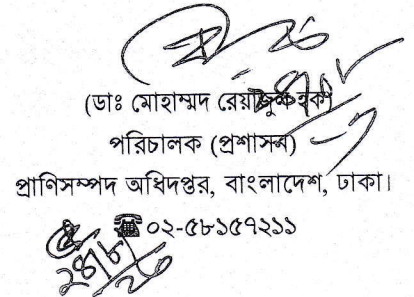 (ডাঃ মোহাম্মদ রেয়াজুল হক)
পরিচালক (প্রশাসন)
প্রাণিসম্পদ অধিদপ্তর, বাংলাদেশ, ঢাকা।
☎০২-৫৮১৫৭২১১